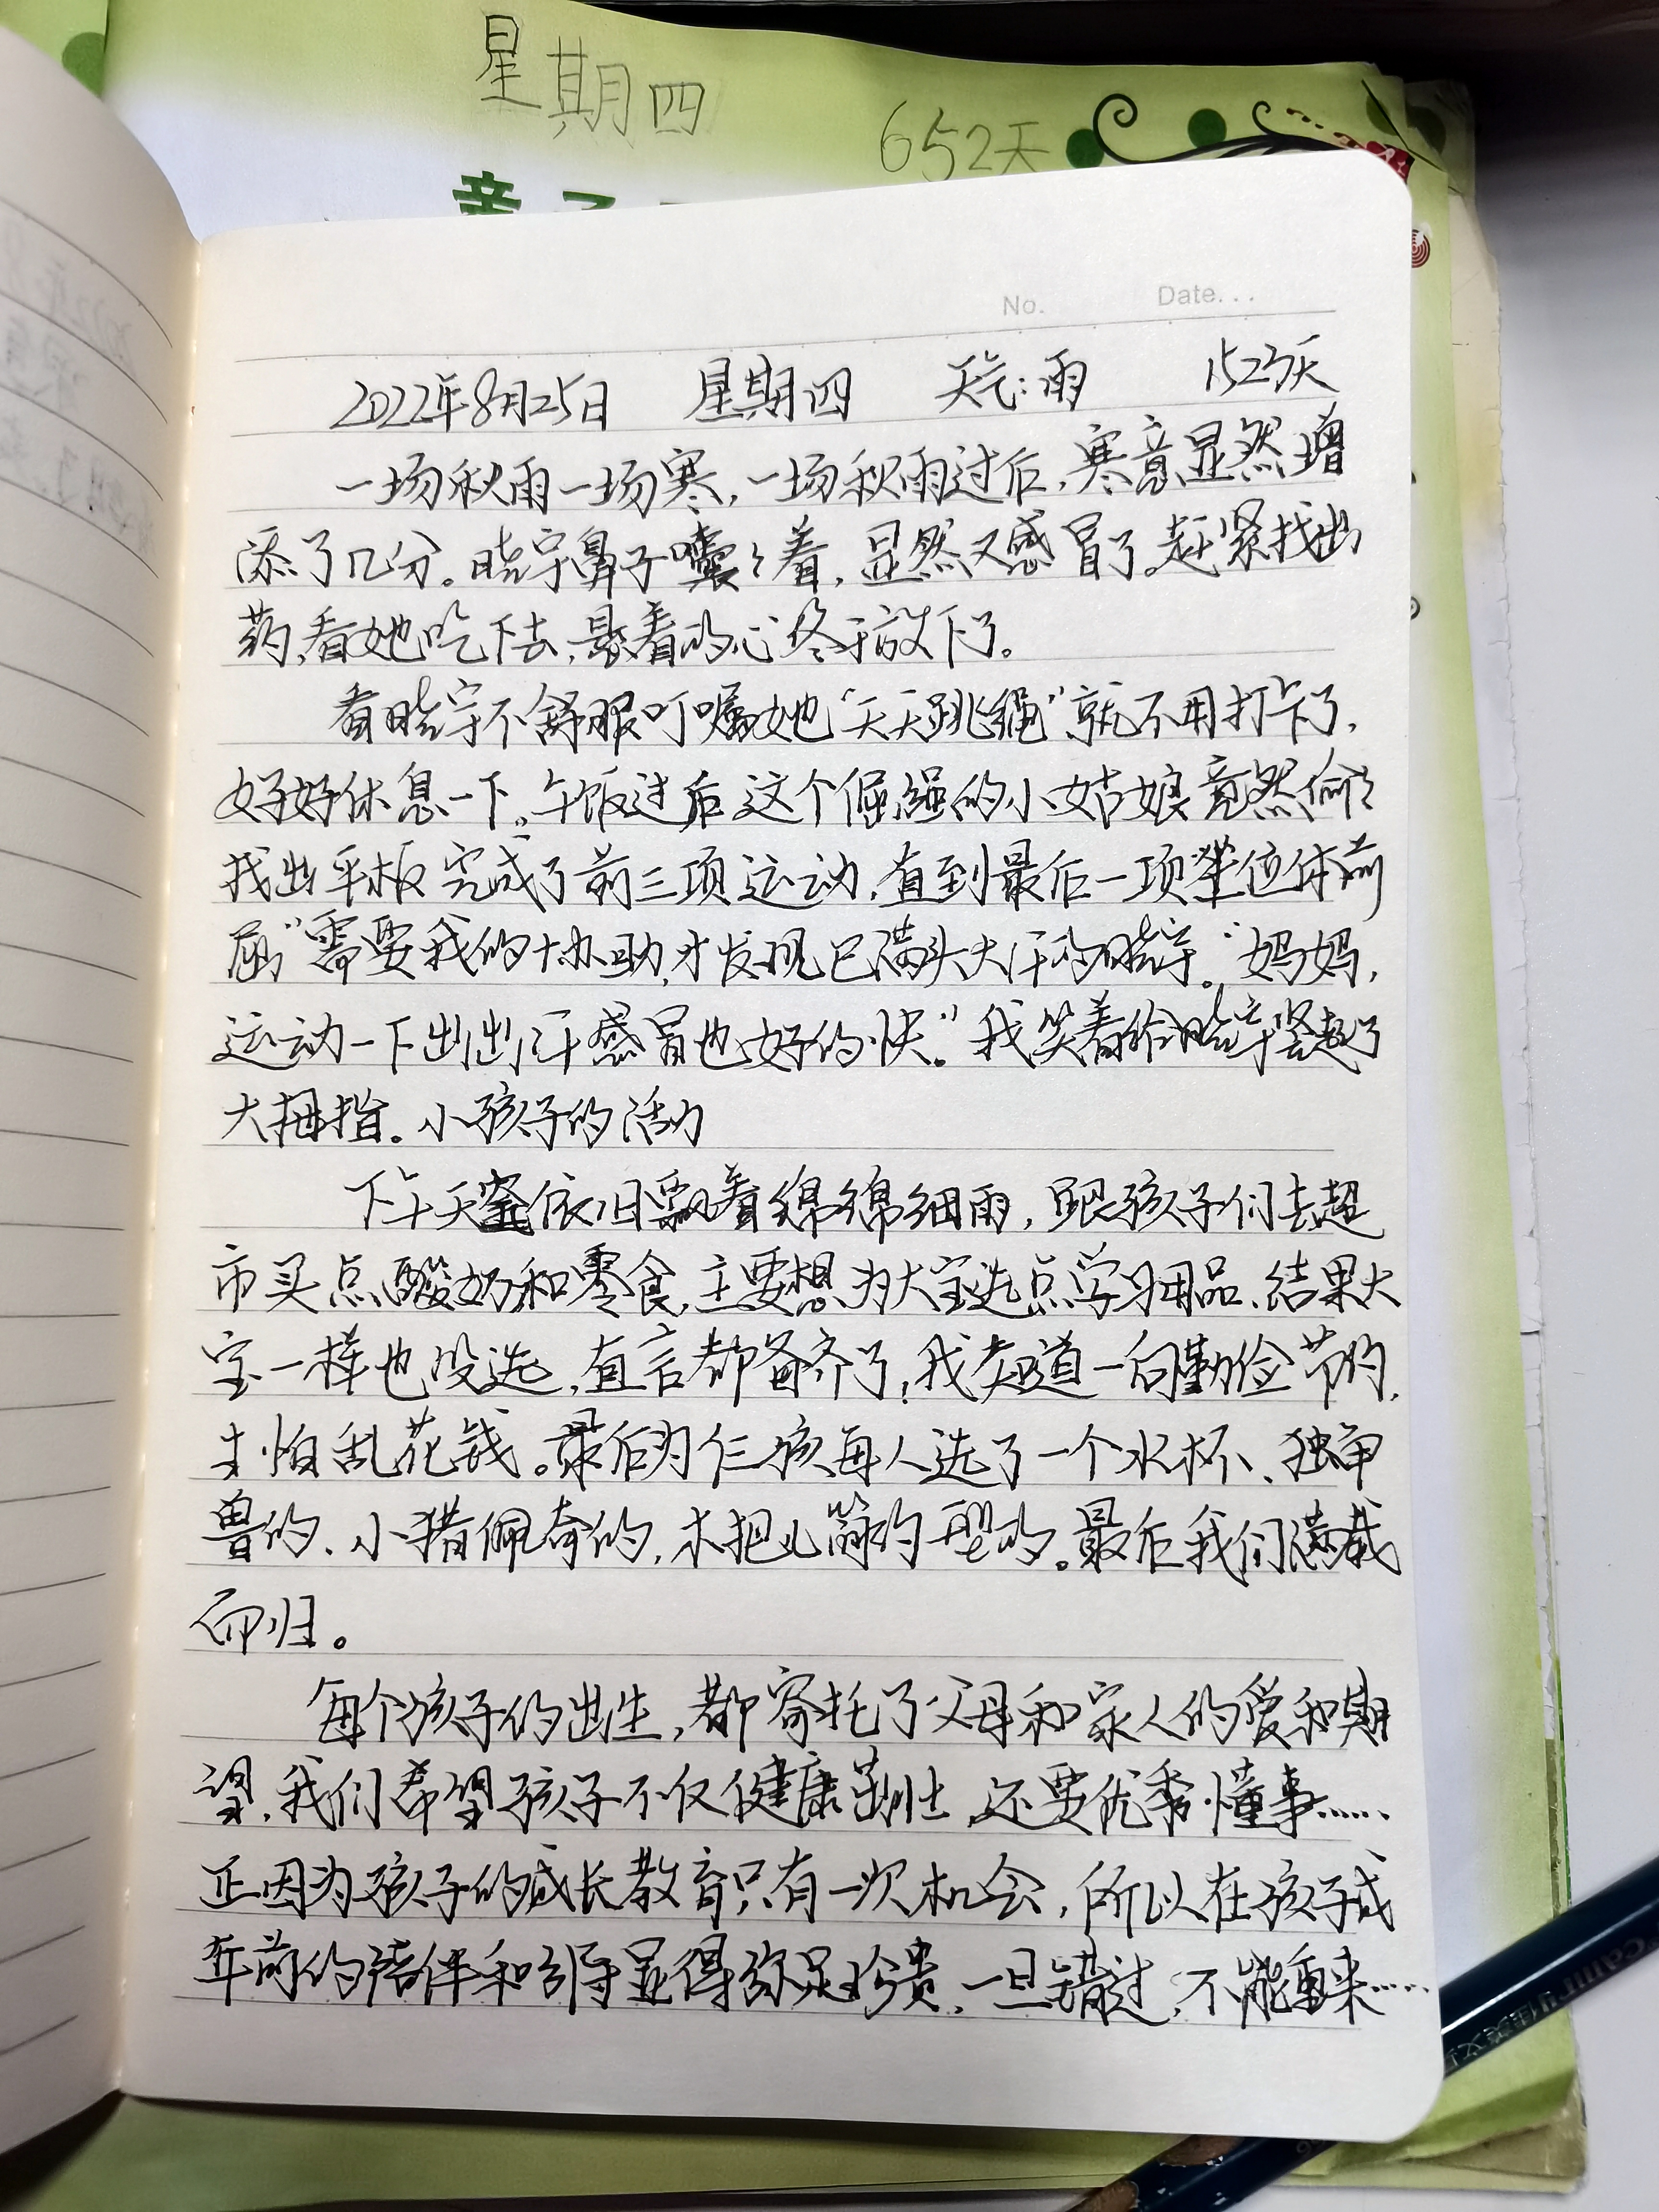 星期四
652天
亲子
No. Date...
2022年8月25日 星期四 天气:雨 1523天
一场秋雨一场寒,一场秋雨过后,寒意显然增
添了几分。晓宇鼻子囔囔着,显然又感冒了。赶紧找出
药,看她吃下去,悬着的心终于放下了。
看晓宇不舒服叮嘱她“天天跳绳”就不用打卡了,
好好休息一下。午饭过后这个倔强的小姑娘竟然偷偷
找出平板完成了前三项运动,直到最后一项“坐位体前
屈”需要我的协助,才发现已满头大汗的晓宇。“妈妈,
运动一下出出汗感冒也好的快。”我笑着给晓宇竖起了
大拇指。小孩子的活力
下午天空依旧飘着绵绵细雨,跟孩子们去超
市买点酸奶和零食,主要想为大宝选点学习用品,结果大
宝一样也没选,直言都备齐了,我知道一向勤俭节约,
生怕乱花钱。最后为仨孩每人选了一个水杯、独角
兽的、小猪佩奇的,木把儿简约型的。最后我们满载
而归。
每个孩子的出生,都寄托了父母和家人的爱和期
望,我们希望孩子不仅健康茁壮,还要优秀懂事……
正因为孩子的成长教育只有一次机会,所以在孩子成
年前的陪伴和引导显得弥足珍贵,一旦错过,不能重来……